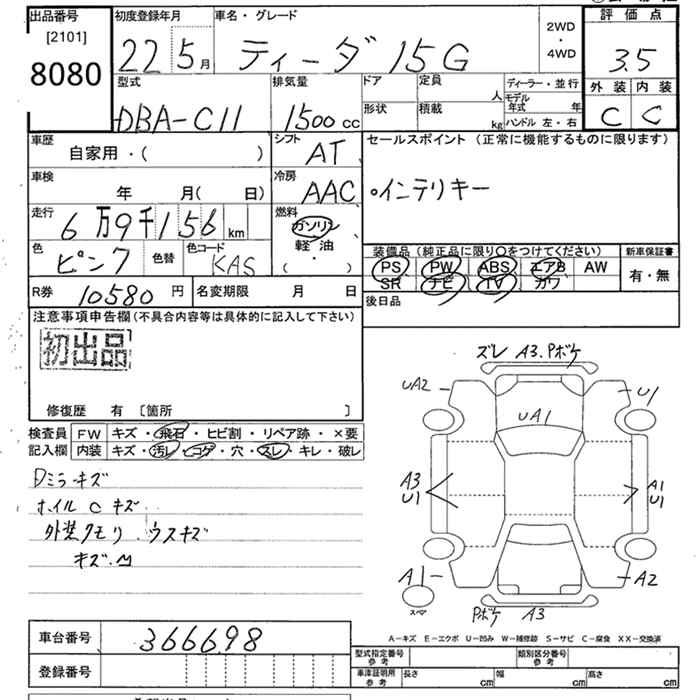 出品番号 初度登録年月 車名・グレード 評価点
[2101]
8080
22 5月 ティーダ 15G
2WD
・
4WD
3.5
外装 内装
C C
型式 排気量 ドア 定員 人 ディーラー・並行
モデル年式 年
DBA-C11 1500cc 形状 積載 kg ハンドル 左・右
車歴 シフト セールスポイント (正常に機能するものに限ります)
自家用・( ) AT
車検 冷房
年 月( 日) AAC ○インテリキー
走行 燃料
6万9千156km ガソリン
軽油
( ・ )
色 色替 色コード
ピンク KAS
装備品 (純正品に限り○をつけてください) 新車保証書
PS PW ABS エアB AW 有・無
SR ナビ TV カワ
R券 10580円 名変期限 月 日 後日品
注意事項申告欄(不具合内容等は具体的に記入して下さい)
初出品
修復歴 有 [箇所 ]
検査員 FW キズ・飛石・ヒビ割・リペア跡・×要
記入欄 内装 キズ・汚レ・コゲ・穴・スレ・キレ・破レ
Dミラキズ
ホイルCキズ
外装クモリ ウスキズ
キズ.M
ズレ A3.Pボケ
UA2 U1
UA1
A3 A1
U1 U1
A1 A2
スペア
Pボケ A3
A－キズ E－エクボ U－凹み W－補修跡 S－サビ C－腐食 XX－交換済
車台番号 366698
登録番号
型式指定番号 参考 類別区分番号 参考
車庫証明用 参考 長さ cm 幅 cm 高さ cm